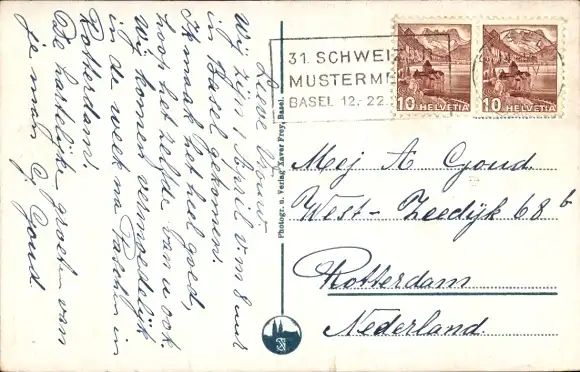 Lieve Vrouw
Wij zijn 1 April v m 8 uur
in Basel gekomen.
Ik maak het heel goed,
hoor het zelfde van u ook.
Wij komen vermoedelijk
in de week na Paschen in
Rotterdam.
De hartelijke groeten van
je man Cj Goud.
Photogr. u. Verlag Xaver Frey, Basel.
31. SCHWEIZ
MUSTERM
BASEL 12.-22.
10 HELVETIA
10 HELVETIA
Mej A Goud
West-Zeedijk 68 b
Rotterdam
Nederland.